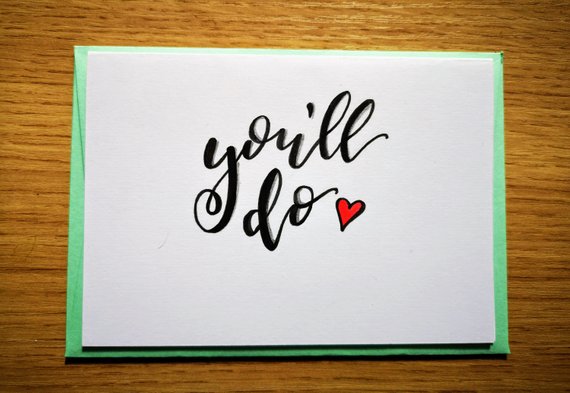 you'll
do